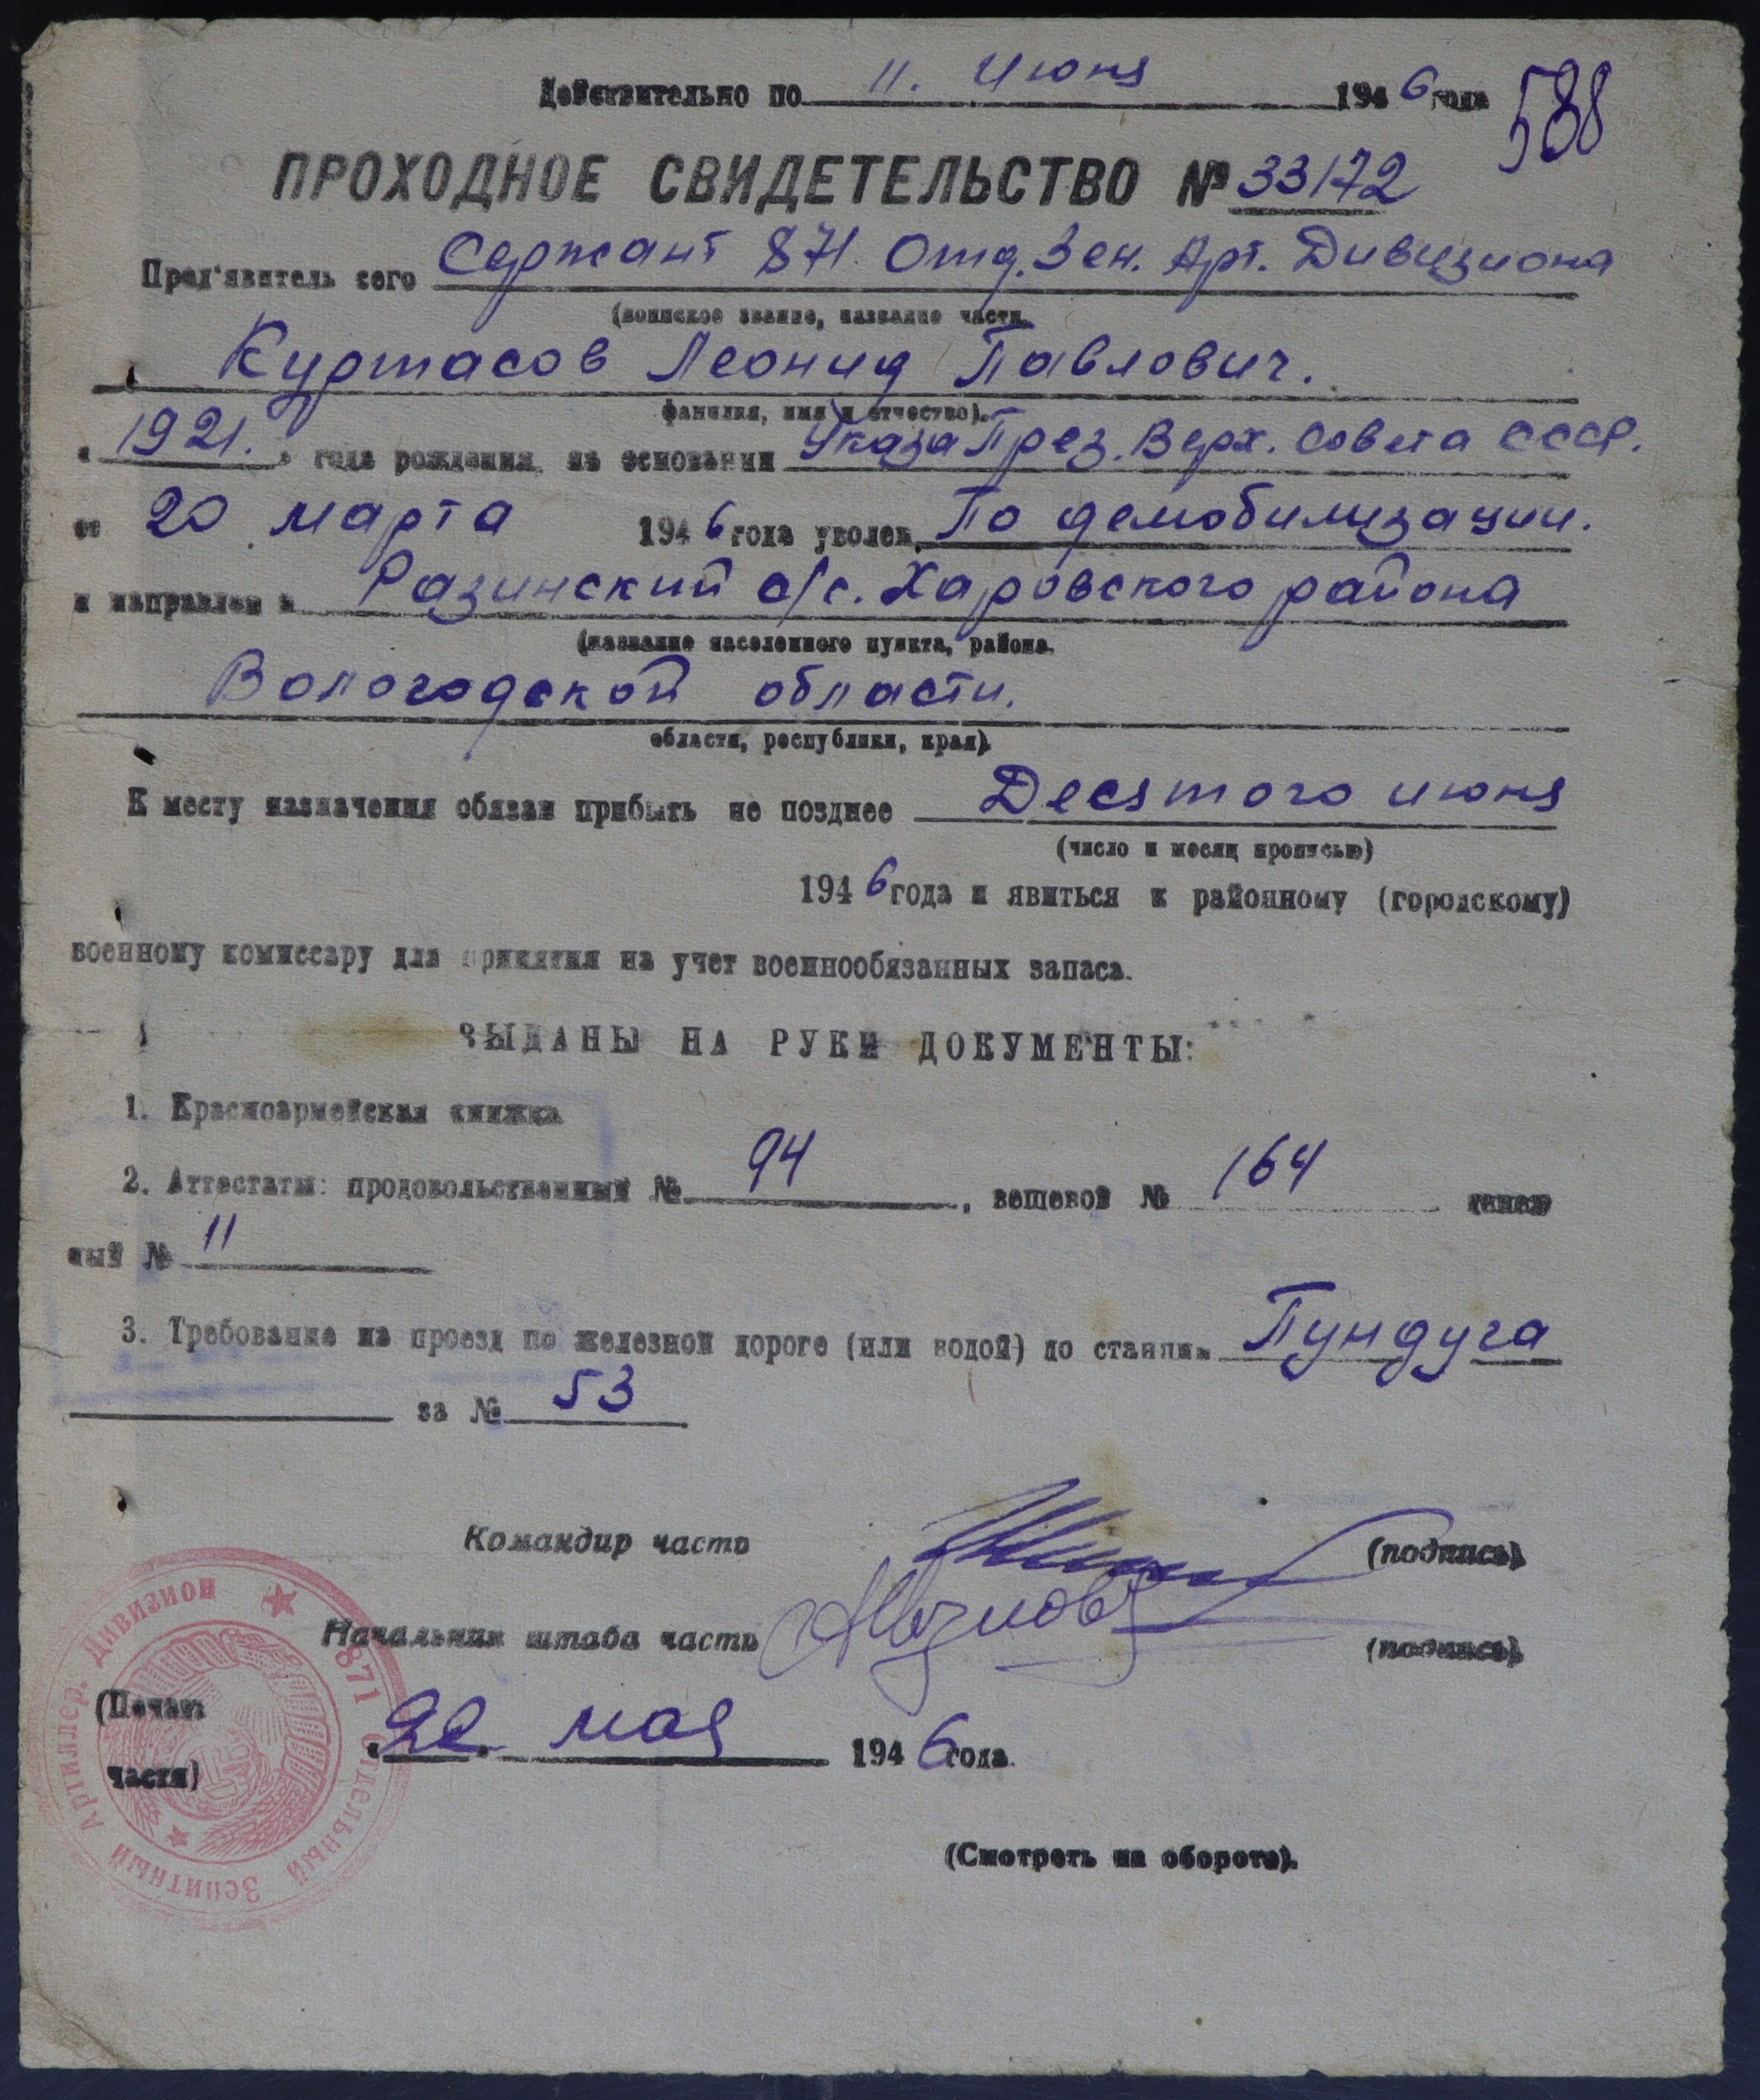 Действительно по 11. Июня 1946 года
588
ПРОХОДНОЕ СВИДЕТЕЛЬСТВО № 33172
Пред'явитель сего Сержант 871. Отд. Зен. Арт. Дивизиона
(воинское звание, название части,
Куртасов Леонид Павлович.
фамилия, имя и отчество).
"1921." года рождения, на основании Указа През. Верх. Совета СССР.
от 20 марта 1946 года уволен По демобилизации.
и направлен в Разинский с/с. Харовского района
(название населенного пункта, района,
Вологодской области.
области, республики, края).
К месту назначения обязан прибыть не позднее Десятого июня
(число и месяц прописью)
1946 года и явиться к районному (городскому)
военному комиссару для принятия на учет военнообязанных запаса.
ВЫДАНЫ НА РУКИ ДОКУМЕНТЫ:
1. Красноармейская книжка
2. Аттестаты: продовольственный № 94, вещевой № 164 денеж
ный № 11
3. Требование на проезд по железной дороге (или водой) до станции Пундуга
за № 53
Командир части (подпись)
Начальник штаба части (подпись)
(Печать
части)
"22" мая 1946 года.
871 Отдельный Зенитный Артиллер. Дивизион
(Смотреть на обороте).